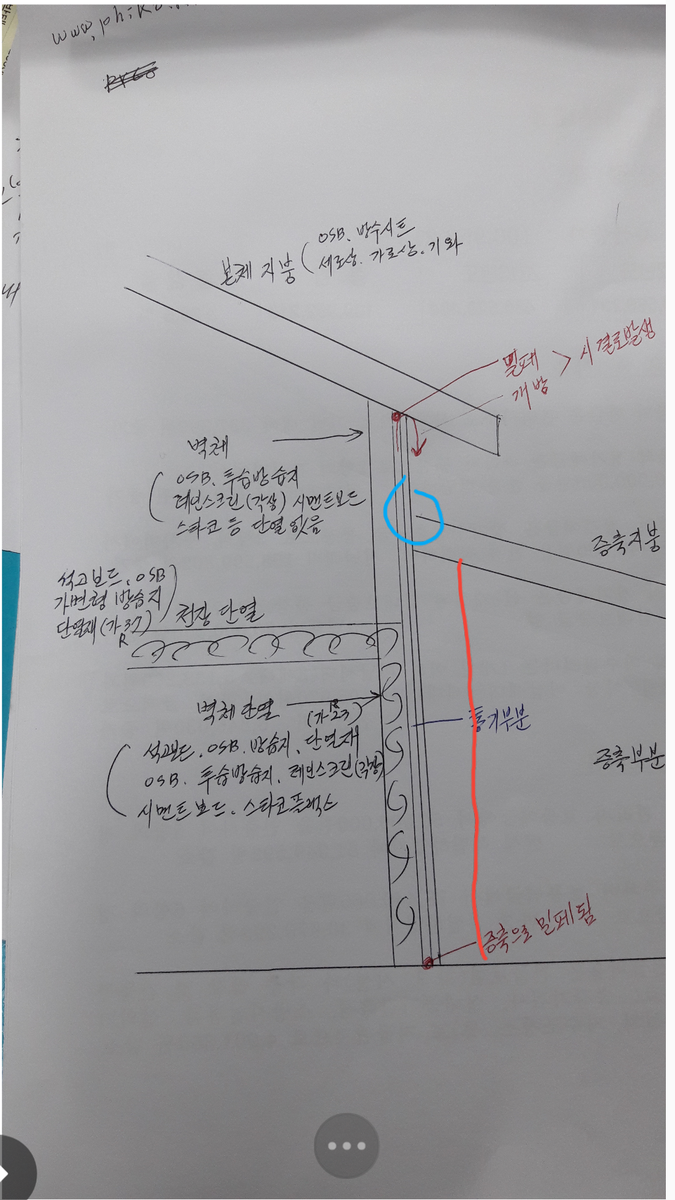 www.phiko.
본체 지붕
OSB. 방수시트
세로상. 가로상. 기와
밀폐
개방
시 결로발생
벽체
OSB. 투습방습지
레인스크린(각상) 시멘트보드
스타코 등 단열 없음
증축지붕
석고보드. OSB
가변형 방습지
단열재(가 37)
R
천장 단열
벽체 단열
(가 23)
통기부분
석고보드. OSB. 방습지. 단열재
OSB. 투습방습지. 레인스크린(각상)
시멘트보드. 스타코플렉스
증축부분
증축으로 밀폐됨